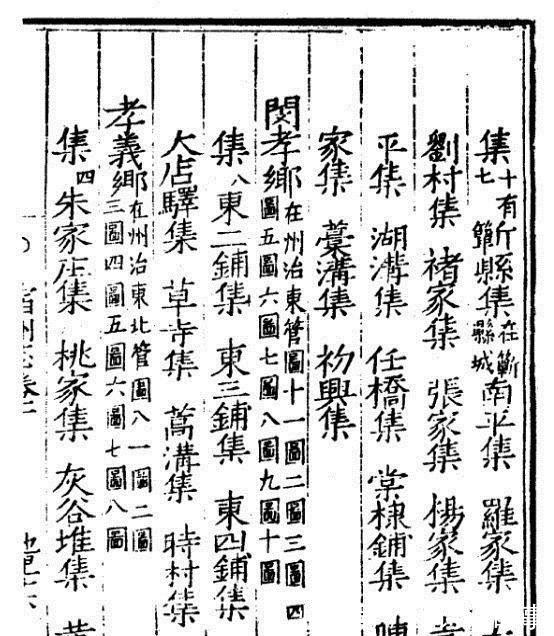 集十有七蘄縣集在蘄縣城南平集 羅家集
劉村集 褚家集 張家集 楊家集
平集 湖溝集 任橋集 棠棣鋪集
家集 藁溝集 礿興集
閔孝鄉在州治東管圖十一圖二圖三圖四圖五圖六圖七圖八圖九圖十圖
集八東二鋪集 東三鋪集 東四鋪集
大店驛集 草寺集 蒿溝集 時村集
孝義鄉在州治東北管圖八一圖二圖三圖四圖五圖六圖七圖八圖
集四朱家庄集 桃家集 灰谷堆集
宿州志卷 地理